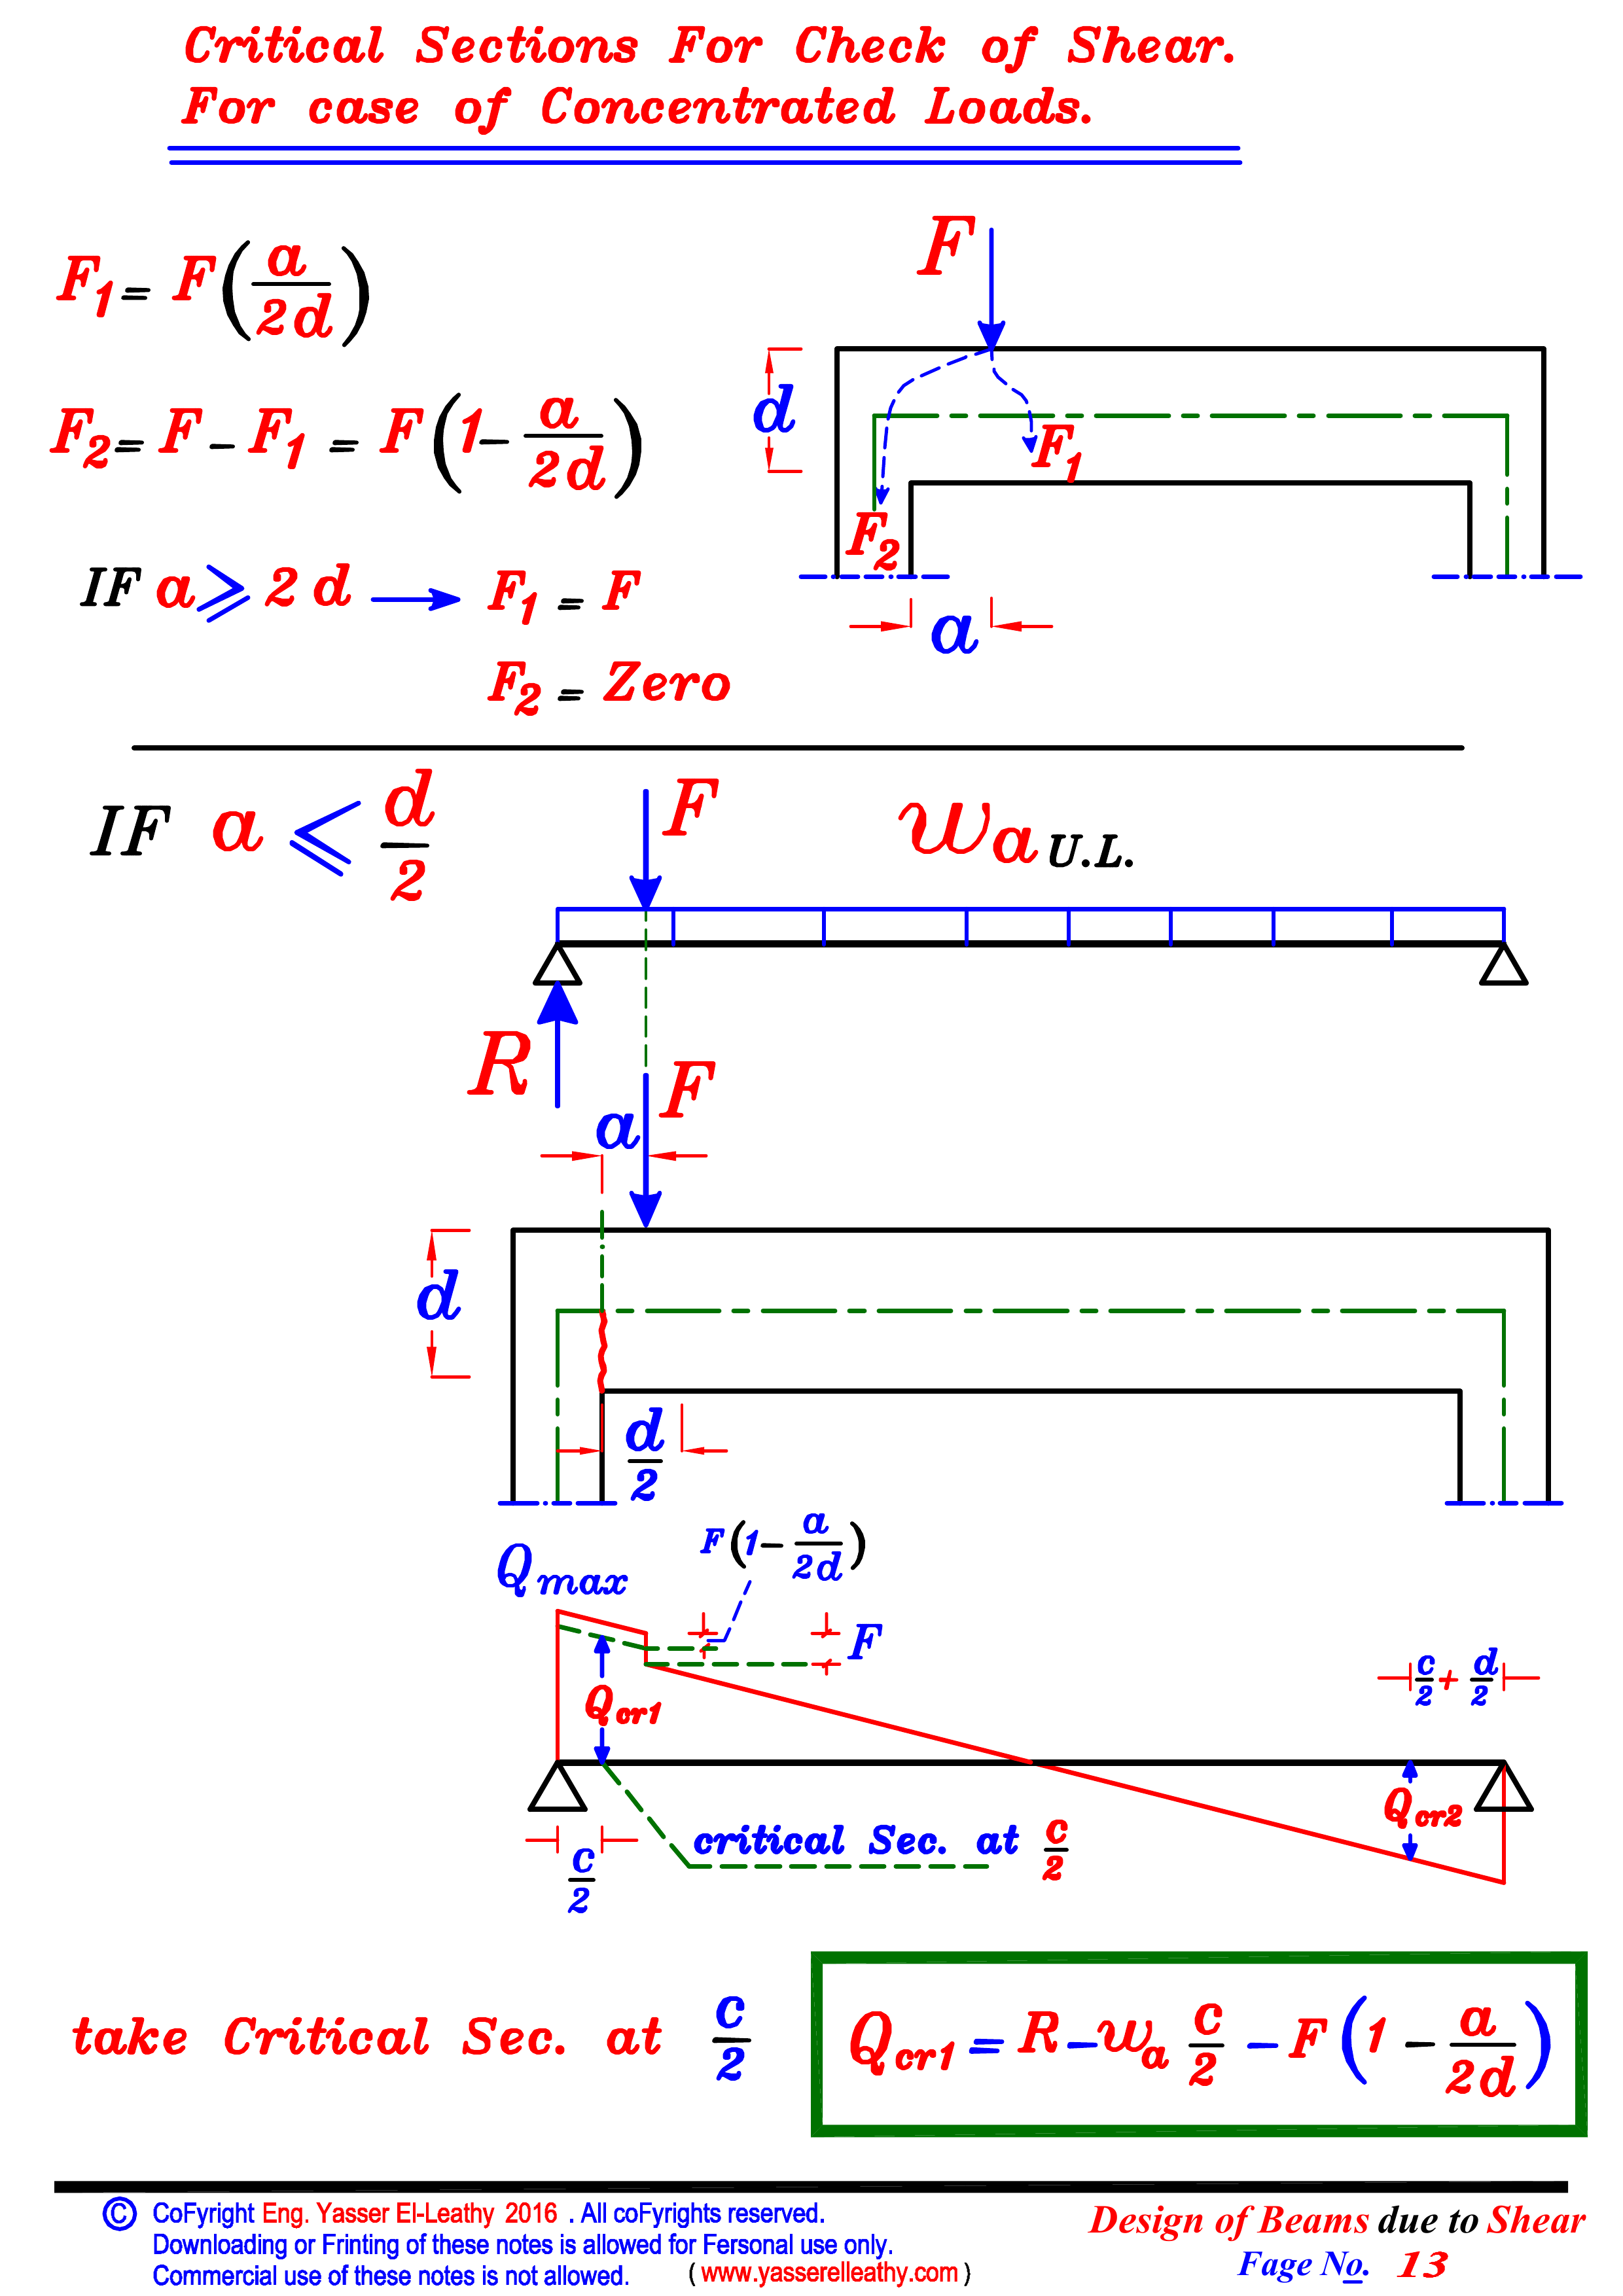 Critical Sections For Check of Shear.
For case of Concentrated Loads.
F1 = F(a/2d)
F2 = F - F1 = F(1 - a/2d)
IF a ⩾ 2d → F1 = F
F2 = Zero
F
d
F1
F2
a
IF a ⩽ d/2
F
wa U.L.
R
F
a
d
d/2
Qmax
F(1 - a/2d)
F
Qcr1
c/2 + d/2
Qcr2
critical Sec. at c/2
c/2
take Critical Sec. at c/2
Qcr1 = R - wa c/2 - F(1 - a/2d)
© CoFyright Eng. Yasser El-Leathy 2016 . All coFyrights reserved.
Downloading or Frinting of these notes is allowed for Fersonal use only.
Commercial use of these notes is not allowed. ( www.yasserelleathy.com )
Design of Beams due to Shear
Fage No. 13